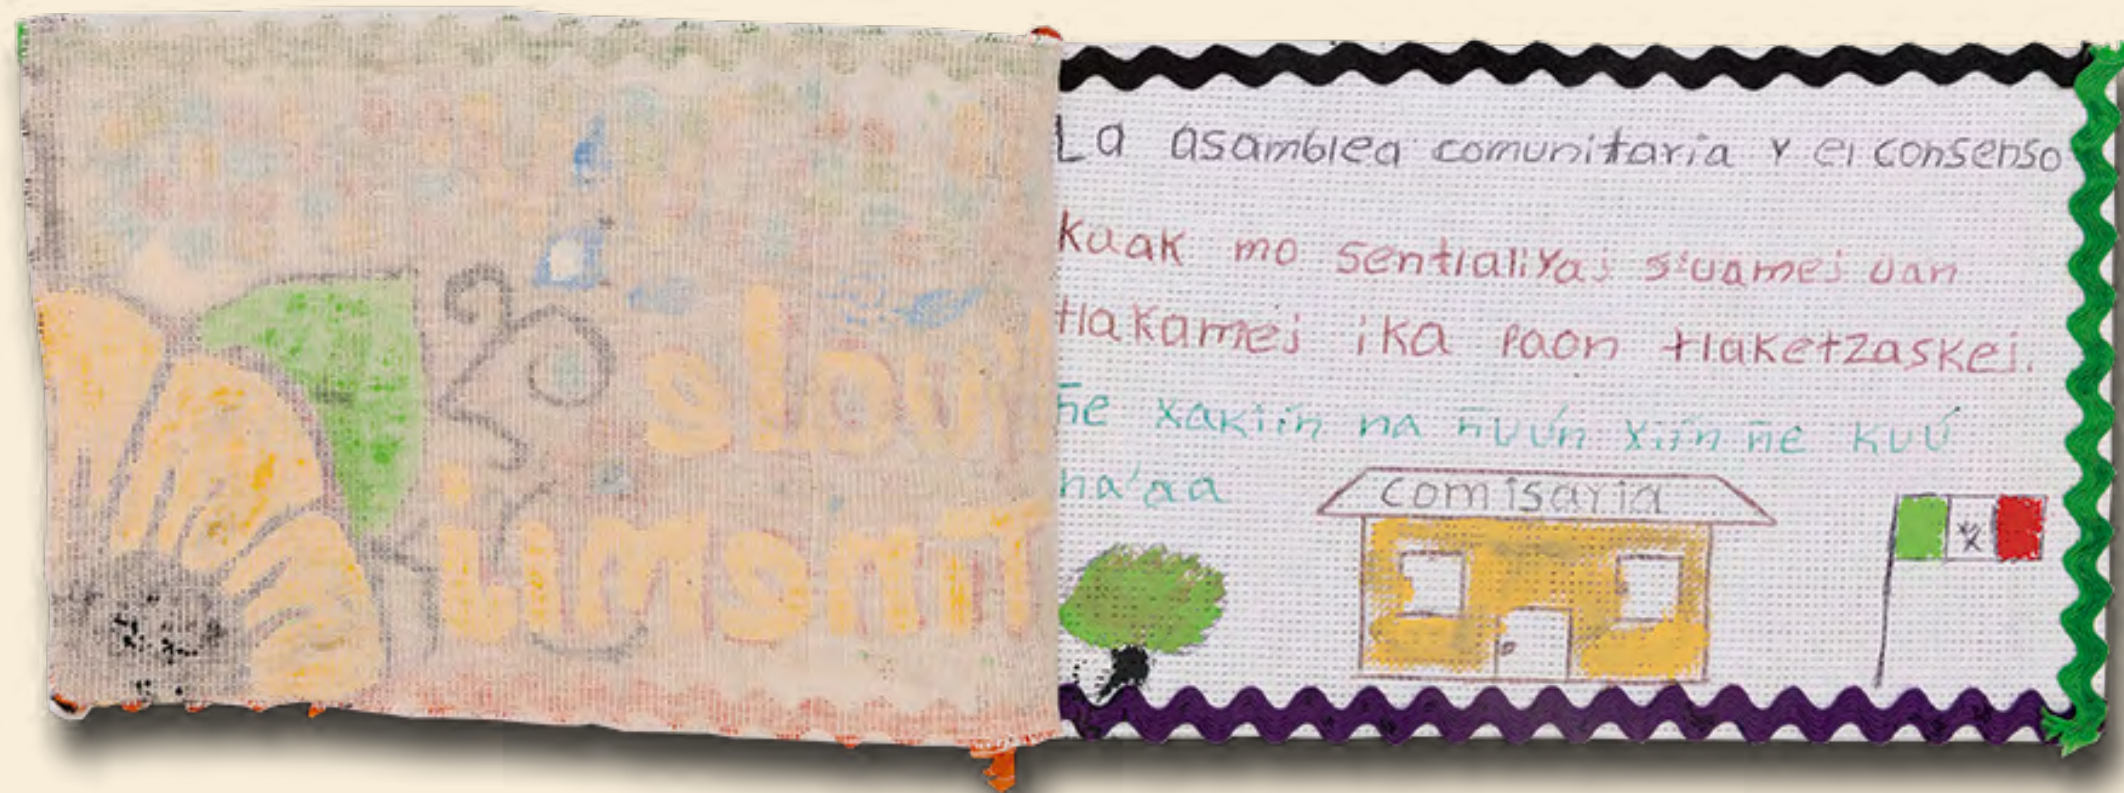 La asamblea comunitaria y el consenso
kuak mo sentlaliyaj siuamej uan
tlakamej ika paon tlaketzaskej.
ñe xakiin na ñuún xiín ñe kuú
na'aa
comisaria